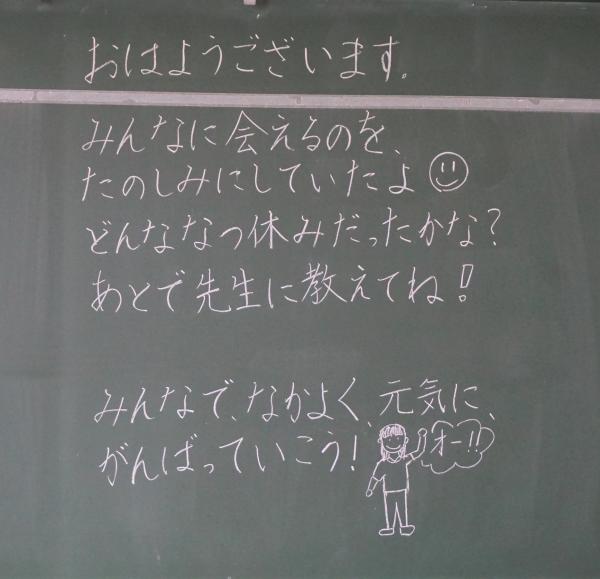 おはようございます。
みんなに会えるのを、
たのしみにしていたよ
どんななつ休みだったかな?
あとで先生に教えてね!
みんなで、なかよく、元気に、
がんばっていこう!
オー!!